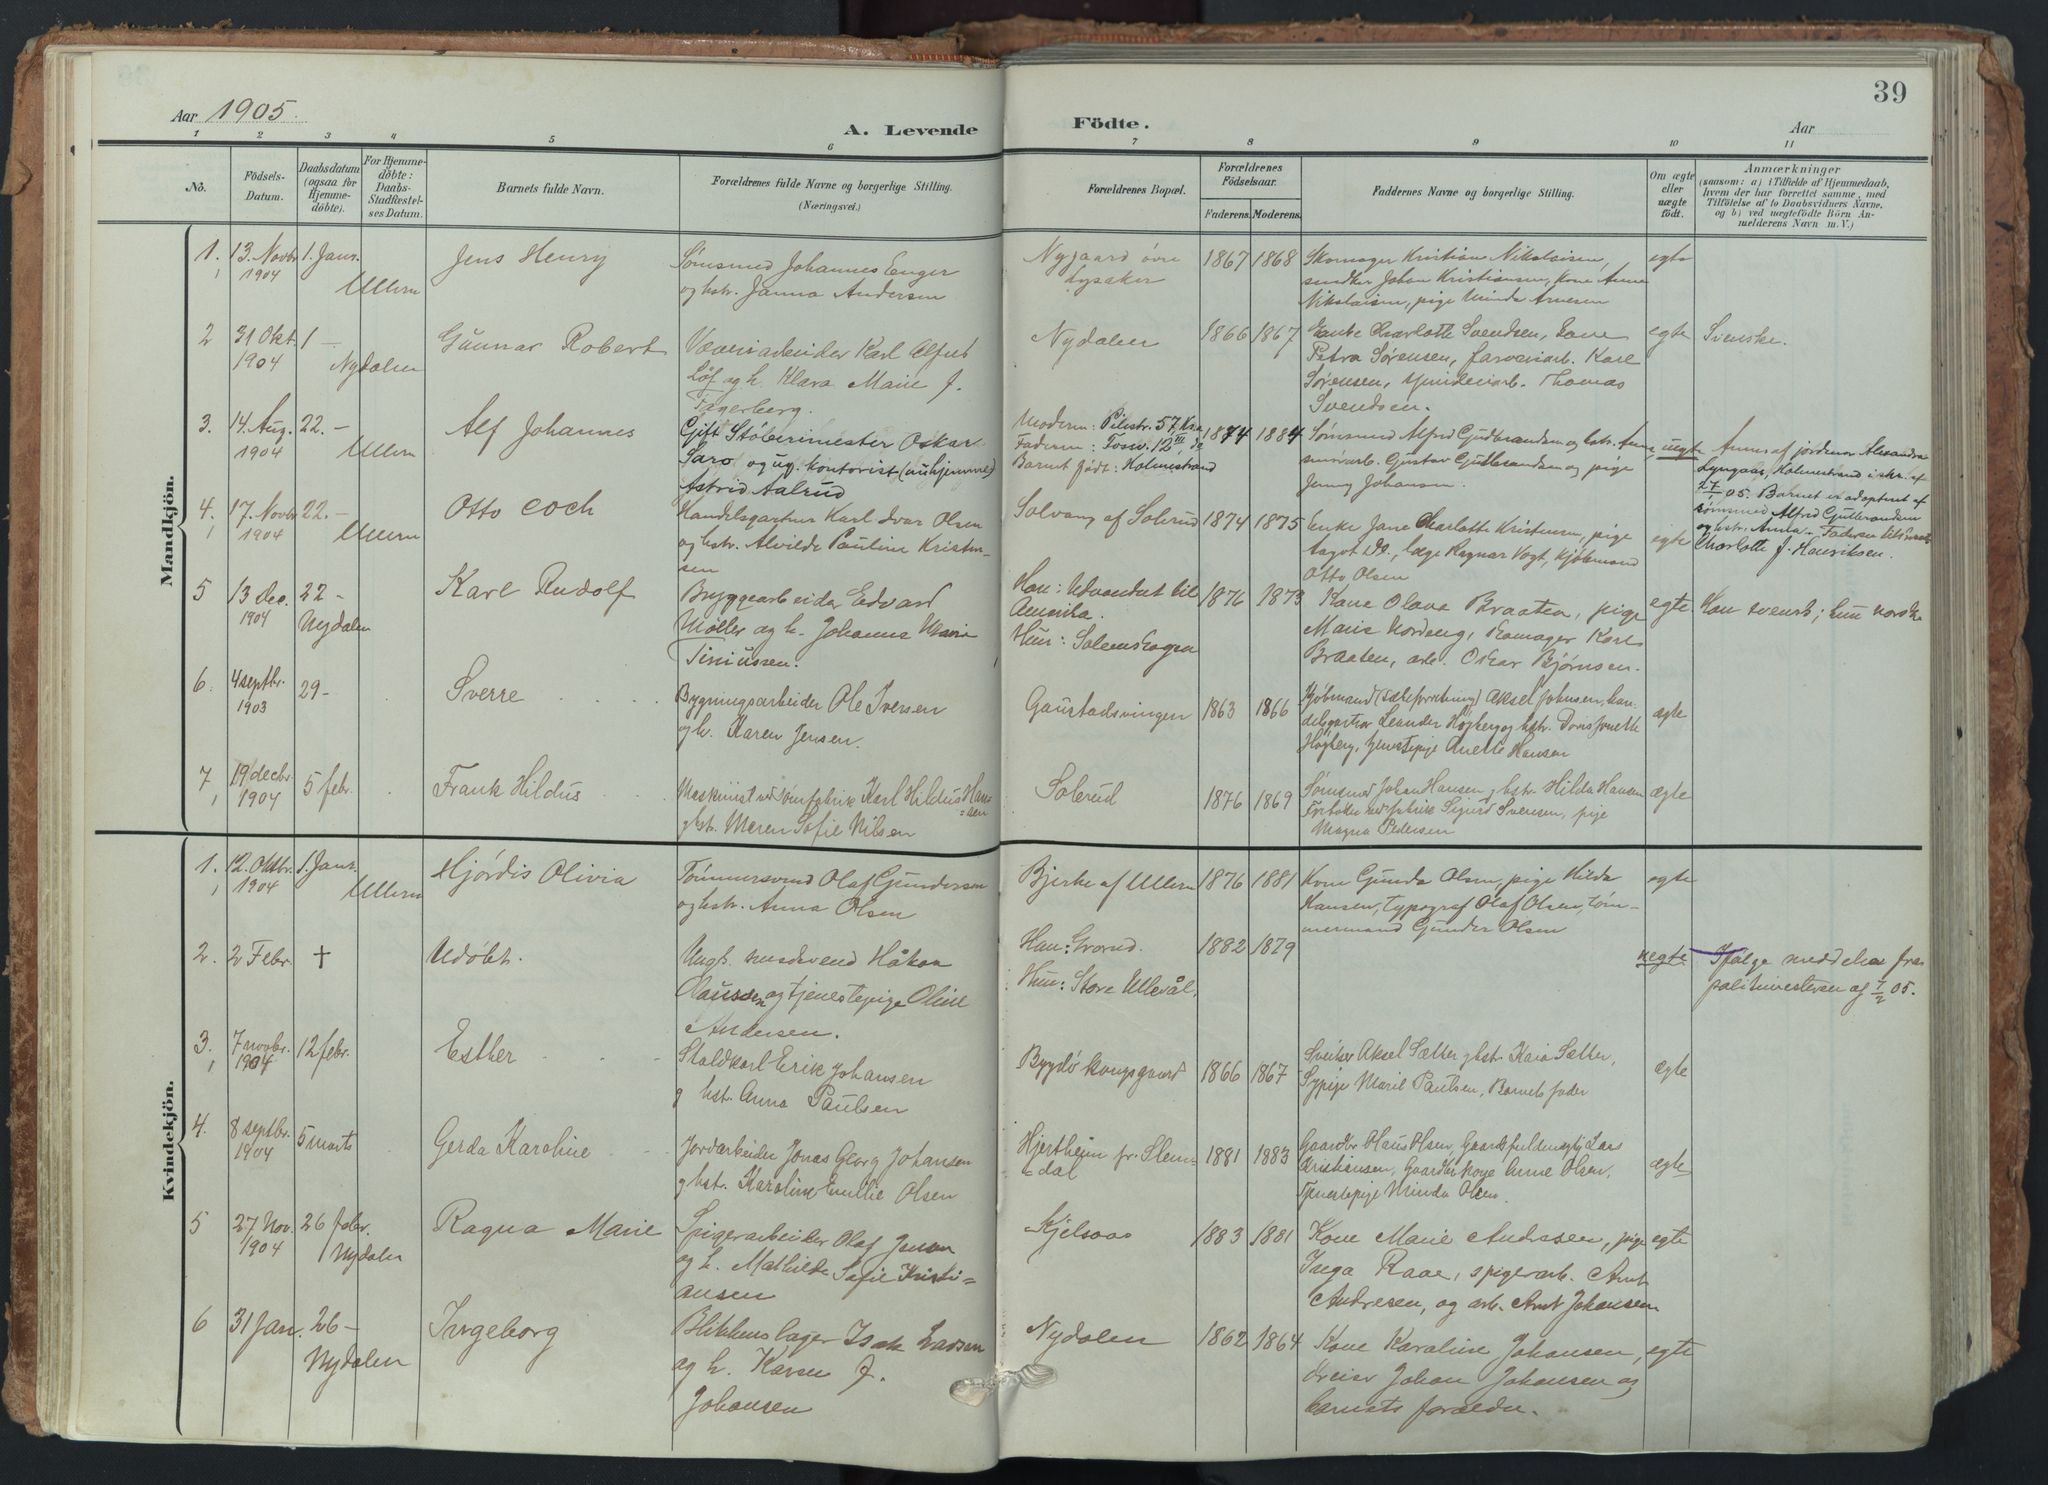 39
Aar 1905.
A. Levende Födte.
Aar
1 2 3 4 5 6 7 8 9 10 11
No.
Födsels-
Datum.
Daabsdatum
(ogsaa for
Hjemme-
döbte).
For Hjemme-
döbte:
Daabs-
Stadfæstel-
ses Datum.
Barnets fulde Navn.
Forældrenes fulde Navne og borgerlige Stilling.
(Næringsvei.)
Forældrenes Bopæl.
Forældrenes
Födselsaar.
Faderens.
Moderens.
Faddernes Navne og borgerlige Stilling.
Om ægte
eller
uægte
födt.
Anmærkninger
(saasom: a) i Tilfælde af Hjemmedaab,
hvem der har forrettet samme, med
Tilföielse af to Daabsvidners Navne,
og b) ved uægtefödte Börn An-
melderens Navn m. V.)
Mandkjön.
1. 13. Novbr. 1904
1. Janr. Ullern
Jens Henry
Sömsmed Johannes Enger
og hstr. Janna Andersen
Nygaard övre
Lysaker
1867 1868
Skomager Kristian Nikolaisen,
snedker Johan Kristiansen, kone Anna
Nikolaisen, pige Minda Arnesen
egte
2 31 Okt. 1904
1 – Nydalen
Gunnar Robert
Væveriarbeider Karl Alfred
Löf og h. Klara Marie J.
Fagerberg.
Nydalen
1866 1867
Enke Charlotte Svendsen, kone
Petra Sørensen, farveriarb. Karl
Sørensen, spinderiarb. Thomas
Svendsen.
egte
Svenske.
3. 14. Aug. 1904
22. – Ullern
Alf Johannes
Gift Støberimester Oskar
Saro og ug. kontorist (nu hjemme)
Astrid Aalrud
Moderen: Pilestr. 57, Kra
Faderen: Tosv. 12 III, do
Barnet født: Holmestrand
1874 1884
Sømsmed Alfred Gudbrandsen og hstr. Anna,
murarb. Gustav Gulbrandsen og pige
Jenny Johansen.
uegte
Anm. af jordemor Alexandra
Lyngaas, Holmestrand i skr. af
27/1 05. Barnet er adopteret af
sømsmed Alfred Gulbrandsen
og hstr. Anna
Charlotte f. Henriksen.
4. 17. Novbr. 1904
22. – Ullern
Otto Coch
Handelsgartner Karl Ivar Olsen
og hstr. Alvilde Pauline Kristen-
sen
Solvang af Solerud
1874 1875
Enke Jane Charlotte Kristensen, pige
Dagot do., læge Ragnar Vogt, kjøbmand
Otto Olsen
egte
5 13 dec. 1904
22 – Nydalen
Karl Rudolf
Bryggearbeider Edvard
Møller og h. Johanne Marie
Siniussen.
Han: Udvandret til
Amerika.
Hun: Solemskogen
1876 1873
Kone Olava Braaten, pige
Marie Nordeng, skomager Karl
Braaten, arb. Oskar Bjørnsen.
egte
Han svensk; hun norsk.
6. 4 septbr. 1903
29 –
Sverre
Bygningsarbeider Ole Iversen
og h. Karen Jensen.
Gaustadsvingen
1863 1866
Kjøbmand Aksel Johnsen, han-
delsgartner Leander Høgberg og hstr. Doris Jonette
Høgberg, tjenestepige Anette Hansen
ægte
7 19 decbr. 1904
5 febr.
Frank Hildus
Maskinist ved sømfabrik Karl Hildus Han-
sen
og hstr. Maren Sofie Nilsen
Solerud
1876 1869
Sømsmed Johan Hansen og hstr. Hilda Hansen
Forbother ved fabrik Sigurd Svensen, pige
Magna Pedersen
ægte
Kvindekjön.
1. 12. Oktbr. 1904
1. Janr. Ullern
Hjørdis Olivia
Tömmersvend Olaf Gundersen
og hstr. Anna Olsen
Bjerke af Ullern
1876 1881
Kone Gunda Olsen, pige Hilda
Hansen, typograf Olaf Olsen, töm-
mermand Gunder Olsen
egte
2. 2 Febr.
+
Udöbt.
Ungk. Håkon
Clausen og tjenestepige Oline
Andersen.
Han: Grorud.
Hun: Store Ullevål.
1882 1879
uegte
Ifølge meddelse fra
politimesteren af 7/2 05.
3. 7 novbr. 1904
12 febr.
Esther
Staldkarl Erik Johansen
og hst. Anna Paulsen
Bygdö kongsgaard
1866 1867
Sveitser Aksel Sætter og hst. Kaia Sætter,
Sypige Marie Paulsen, Barnets fader
ægte
4. 8 septbr. 1904
5 marts
Gerda Karoline
Jordarbeider Jonas Georg Johansen
og hst. Karoline Emilie Olsen
Hjertheim pr. Slem-
dal
1881 1883
Gaardbr Olaus Olsen, Gaardsfuldmægtig Lars
Kristiansen, Gaardbr kone Anne Olsen,
Tjenestepige Minda Olsen
ægte
5 27 Nov. 1904
26 febr. Nydalen
Ragna Marie
Spigerarbeider Olaf Jensen
og h. Mathilde Sofie Kristi-
ansen
Kjelsaas
1883 1881
Kone Marie Andresen, pige
Inga Raae, spigerarb. Arnt
Andresen, og arb. Arnt Johansen
egte
6 31 Jan.
26 – Nydalen
Ingeborg
Blikkenslager Isak Larsen
og h. Karen J.
Johansen
Nydalen
1862 1864
Kone Karoline Johansen,
dreier Johan Johansen og
barnets forældre.
egte